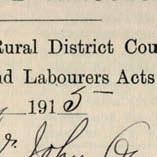 Rural District Cou
nd Labourers Acts
1915
r. John